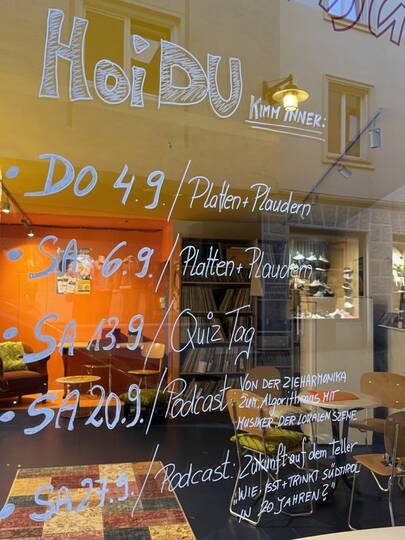 HoiDU
KIMM INNER:
• DO 4.9. / Platten + Plaudern
• SA 6.9. / Platten + Plaudern
• SA 13.9. / Quiz Tag
• SA 20.9. / Podcast: VON DER ZIEHARMONIKA
ZUM ALGORITHMUS MIT
MUSIKER DER LORALEN SZENE
• SA 27.9. / Podcast: Zukunft auf dem Teller
"WIE ISST + TRINKT SÜDTIROL
IN 20 JAHREN?"